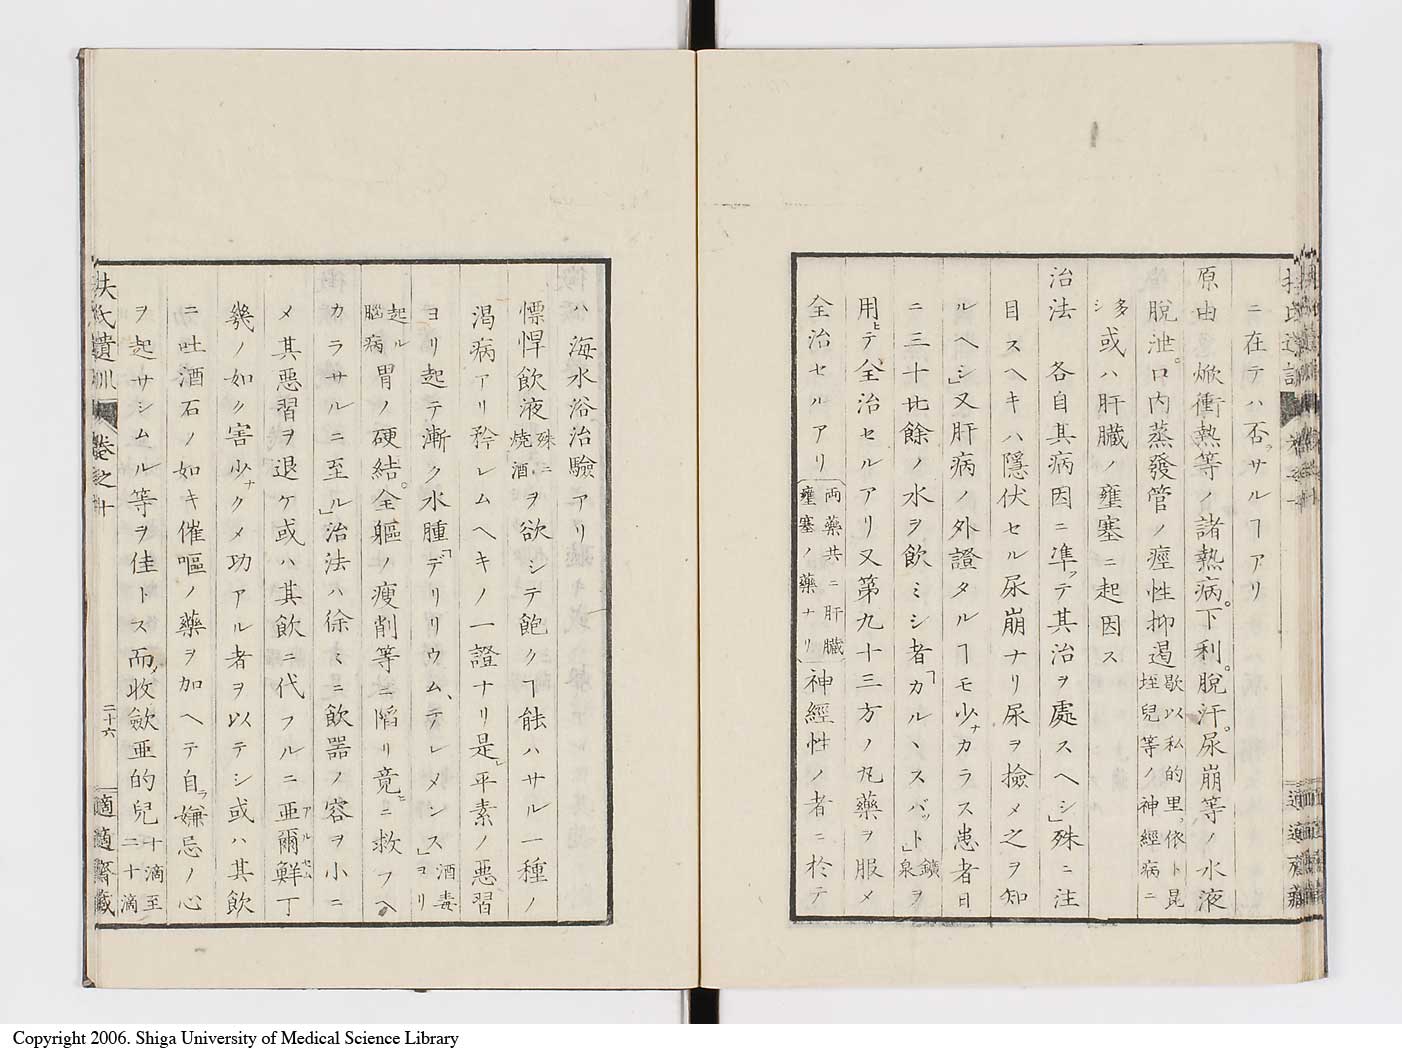 ニ在テハ否ッサルヿアリ
原由 焮衝熱等ノ諸熱病。下利。脫汗。尿崩等ノ水液
脫泄。口內蒸發管ノ痙性抑遏歇以私的里。依卜昆
垤兒等ノ神經病ニ
多シ或ハ肝臟ノ壅塞ニ起因ス
治法 各自其病因ニ準ッテ其治ヲ處スヘシ」殊ニ注
目スヘキハ隱伏セル尿崩ナリ尿ヲ撿メ之ヲ知
ルヘシ」又肝病ノ外證タルヿモ少ナカラス患者日
ニ三十比餘ノ水ヲ飮ミシ者「カル、スバット」鑛泉ヲ
用ヒテ全治セルアリ又第九十三方ノ丸藥ヲ服メ
全治セルアリ
両藥共ニ肝臟
壅塞ノ藥ナリ
神經性ノ者ニ於テ
ハ海水浴治驗アリ
慓悍飮液殊ニ燒酒ヲ欲シテ飽クヿ能ハサル一種ノ
渴病アリ矜レムヘキノ一證ナリ是」平素ノ惡習
ヨリ起テ漸ク水腫「デリリウム、テレメンス」酒毒ヨリ
起ル腦病胃ノ硬結。全軀ノ瘦削等ニ陷リ竟ヒニ救フヘ
カラサルニ至ル」治法ハ徐ミニ飮器ノ容ヲ小ニ
メ其惡習ヲ退ケ或ハ其飮ニ代フルニ亞爾鮮アルセム丁
幾ノ如ク害少ナクメ功アル者ヲ以テシ或ハ其飮
ニ吐酒石ノ如キ催嘔ノ藥ヲ加ヘテ自ラ嫌忌ノ心
ヲ起サシムル等ヲ佳トス而收斂亞的兒十滴至
二十滴
扶氏遺訓 卷之十 二十六 適適齋藏
Copyright 2006. Shiga University of Medical Science Library